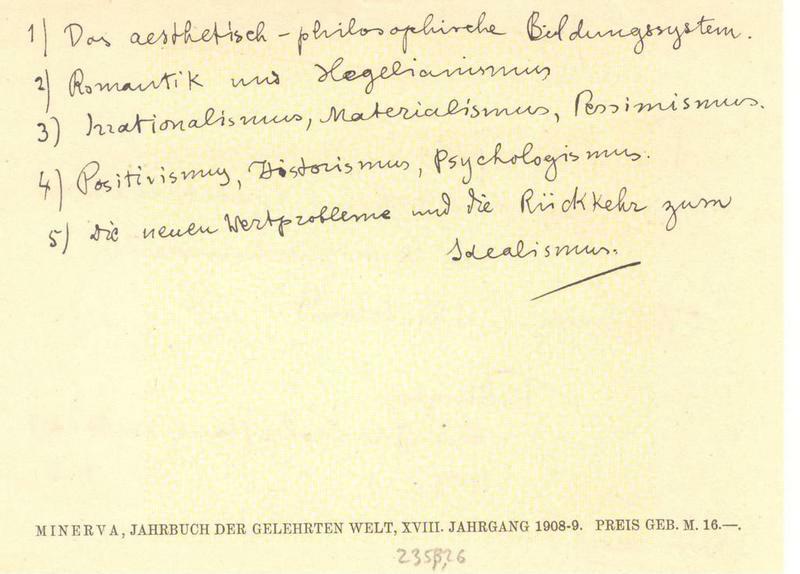 1) Das aesthetisch-philosophische Bildungssystem.
2) Romantik und Hegelianismus
3) Irrationalismus, Materialismus, Pessimismus.
4) Positivismus, Historismus, Psychologismus.
5) Die neuen Wertprobleme und die Rückkehr zum
Idealismus.
MINERVA, JAHRBUCH DER GELEHRTEN WELT, XVIII. JAHRGANG 1908-9. PREIS GEB. M. 16.—.